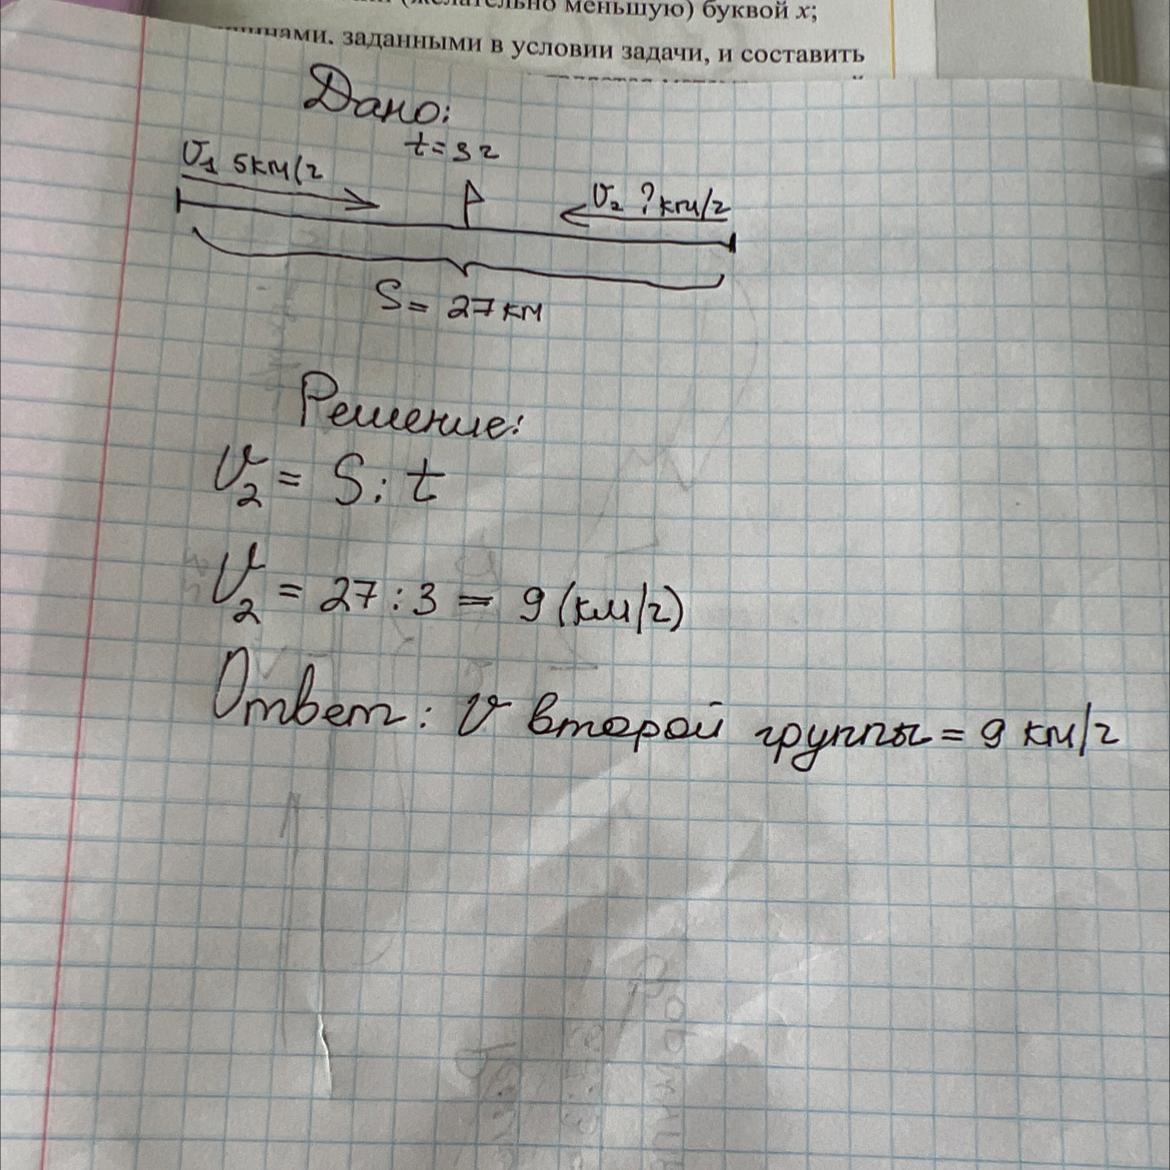 (желательно меньшую) буквой x;
заданными в условии задачи, и составить
Дано:
t=3ч
V₁ 5км/ч
V₂ ?км/ч
S= 27км
Решение:
V₂ = S : t
V₂ = 27 : 3 = 9 (км/ч)
Ответ: V второй группы = 9 км/ч